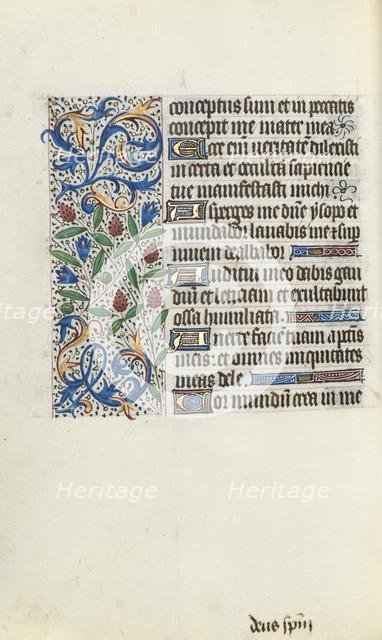 conceptus sum et in peccatis
concepit me mater mea
Ecce em̄ veritatē dilexisti
incerta et occulta sapiencie
tue manifestasti michi
Asperges me dn̄e ysopo et
mundabor lavabis me et sup
nivem dealbabor
Auditui meo dabis gau
diū et leticiam et exultabunt
ossa humiliata
Averte faciē tuam a pctīs
meis : et omnes iniquitates
meas dele
Cor mundū crea in me
deus spm̄
Heritage
Heritage
Heritage
Heritage